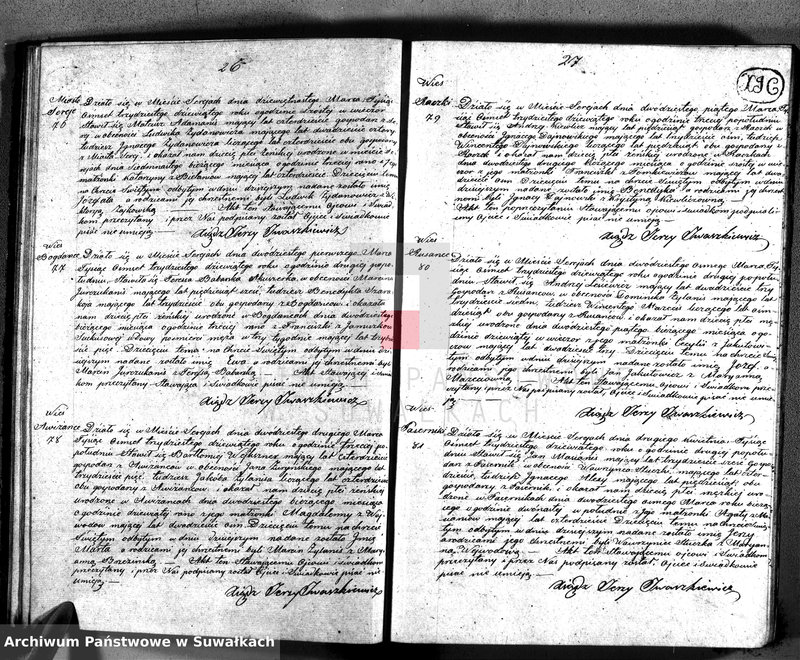 26
Miasto
Sereje
76
Działo się w Mieście Serejach dnia dziewiętnastego Marca Tysiąc
Ośmset trzydziestego dziewiątego roku o godzinie szóstej w wieczor
Stawił się Mateusz Adamani mający lat czterdzieści gospodarz
w obecności Ludwika Żydanowicza mającego lat dwadzieścia cztery
tudzież Ignacego Żydanowicza liczącego lat czterdzieści obu gospodarzy
z Miasta Serej i okazał nam dziecię płci żeńskiej urodzone w mieście
dnia siedmnastego bieżącego miesiąca o godzinie trzeciej rano z jego
małżonki Katarzyny z mającej lat czterdzieści. Dziecięciu temu
na Chrzcie Świętym odbytym w dniu dzisiejszym nadane zostało imię
Józefata a rodzicami jej chrzestnemi byli Ludwik Żydanowicz z
Zajkowską. Akt ten Stawającemu Ojcowi i Świadkom
przeczytany i przez Nas podpisany został, Ojciec i Świadkowie
pisać nie umieją
Xiądz Jerzy Iwaszkiewicz
Wieś
Bogdańce
77
Działo się w Mieście Serejach dnia dwudziestego pierwszego Marca
Tysiąc Ośmset trzydziestego dziewiątego roku o godzinie drugiej popo-
łudniu, Stawiła się Teresa Babarska Akuszerka w obecności Marcina
Jurczukanis mającego lat pięćdziesiąt sześć, tudzież Benedykta
mającego lat trzydzieści obu gospodarzy z Bogdańców i okazała
nam dziecię płci żeńskiej urodzone w Bogdańcach dnia dwudziestego
bieżącego miesiąca o godzinie trzeciej rano z Franciszki z
Wdowy pomienionego męża w trzy tygodnie mającej lat trzydzie-
ści pięć. Dziecięciu temu na Chrzcie Świętym odbytym w dniu dzi-
siejszym nadane zostało imię Ewa a rodzicami jej chrzestnemi byli
Marcin Jurczukanis z Teresą Babarską. Akt ten Stawającej i Świad-
kom przeczytany Stawająca i Świadkowie pisać nie umieją
Xiądz Jerzy Iwaszkiewicz
Wieś
Awiżańce
78
Działo się w Mieście Serejach dnia dwudziestego drugiego Marca
Tysiąc Ośmset trzydziestego dziewiątego roku o godzinie trzeciej po-
południu Stawił się Bartłomiej mający lat czterdzieści
gospodarz z Awiżańców w obecności Jana mającego lat
trzydzieści pięć, tudzież Jakóba Żylanisa liczącego lat czterdzieści
obu gospodarzy z Awiżańców, i okazał nam dziecię płci żeńskiej
urodzone w Awiżańcach dnia dwudziestego bieżącego miesiąca
o godzinie dziewiątej rano z jego małżonki Magdaleny z Wy-
wodów mającej lat dwadzieścia ośm. Dziecięciu temu na chrzcie
Świętym odbytym w dniu dzisiejszym nadane zostało Imię
Marta a rodzicami jej chrzestnemi byli Marcin Żylanis z Mary-
anną Brzezińską. Akt ten Stawającemu Ojcowi i Świadkom
przeczytany i przez Nas podpisany został Ojciec i Świadkowie pisać nie
umieją
Xiądz Jerzy Iwaszkiewicz
27
196
Wieś
Raczki
79
Działo się w Mieście Serejach dnia dwudziestego piątego Marca Ty-
siąc Ośmset trzydziestego dziewiątego roku o godzinie piątej popołudniu
Stawił się Andrzej mający lat pięćdziesiąt gospodarz z Raczek w
obecności Ignacego Dajnowskiego mającego lat trzydzieści ośm, tudzież
Wincentego Dajnowskiego liczącego lat pięćdziesiąt obu gospodarzy
z Raczek i okazał nam dziecię płci żeńskiej urodzone w Raczkach
dnia dwudziestego drugiego bieżącego miesiąca o godzinie szóstej w wie-
czor z jego małżonki Franciszki z Tomkiewiczów mającej lat dwa-
dzieścia ośm. Dziecięciu temu na Chrzcie Świętym odbytym w dniu
dzisiejszym nadane zostało imię Benedykta a rodzicami jej chrze-
stnemi byli Ignacy Dajnowski z Krystyną
Akt ten po przeczytaniu Stawającemu Ojcowi i Świadkom podpisaliśmy
Ojciec i Świadkowie pisać nie umieją.
Xiądz Jerzy Iwaszkiewicz
Wieś
80
Działo się w Mieście Serejach dnia dwudziestego ósmego Marca Ty-
siąc Ośmset trzydziestego dziewiątego roku o godzinie drugiej popołu-
dniu, Stawił się Andrzej mający lat dwadzieścia trzy
gospodarz w obecności Dominika Żylanisa mającego lat
trzydzieści siedm, tudzież Wincentego liczącego lat ośm-
dziesiąt obu gospodarzy i okazał nam dziecię płci mę-
skiej urodzone dnia dwudziestego piątego bieżącego miesiąca o go-
dzinie dziewiątej w wieczor z jego małżonki Cecylii z
mającej lat dwadzieścia trzy. Dziecięciu temu na chrzcie Świę-
tym odbytym w dniu dzisiejszym nadane zostało imię Józef a
rodzicami jego chrzestnemi byli Jan Jakutowicz z Maryanną
Akt ten Stawającemu Ojcowi i Świadkom prze-
czytany i przez Nas podpisany został, Ojciec i Świadkowie pisać nie umie-
ją
Xiądz Jerzy Iwaszkiewicz
Wieś
81
Działo się w Mieście Serejach dnia drugiego Kwietnia Tysiąc
Ośmset trzydziestego dziewiątego roku o godzinie drugiej popołu-
dniu, Stawił się Jan mający lat trzydzieści sześć gospo-
darz w obecności Wawrzyńca mającego lat czter-
dzieści, tudzież Ignacego mającego lat pięćdziesiąt, obu
gospodarzy, i okazał nam dziecię płci męzkiej uro-
dzone dnia dwudziestego ósmego Marca roku bieżą-
cego o godzinie dwunastej w południe z jego małżonki Agaty z
mającej lat czterdzieści. Dziecięciu temu na chrzcie Świę-
tym odbytym w dniu dzisiejszym nadane zostało imię Jerzy
a rodzicami jego chrzestnemi byli Wawrzyniec z Maryan-
ną Wywodową. Akt ten Stawającemu Ojcowi i Świadkom
przeczytany i przez Nas podpisany został, Ojciec i Świadkowie
pisać nie umieją
Xiądz Jerzy Iwaszkiewicz
Archiwum Państwowe w Suwałkach